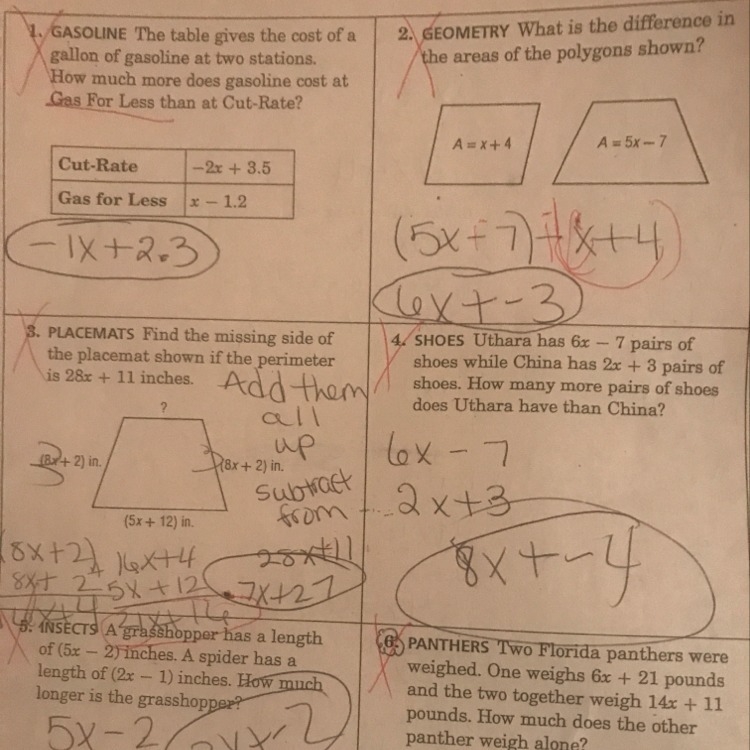 1. GASOLINE The table gives the cost of a
gallon of gasoline at two stations.
How much more does gasoline cost at
Gas For Less than at Cut-Rate?
Cut-Rate −2x + 3.5
Gas for Less x − 1.2
−1x+2.3
2. GEOMETRY What is the difference in
the areas of the polygons shown?
A = x + 4
A = 5x − 7
(5x−7)−(x+4)
6x+−3
3. PLACEMATS Find the missing side of
the placemat shown if the perimeter
is 28x + 11 inches.
Add them
all
up
subtract
from
?
(8x + 2) in.
(8x + 2) in.
(5x + 12) in.
8x+2
8x+ 2
16x+4
16x+4
5x+12
28x+11
7x+27
4. SHOES Uthara has 6x − 7 pairs of
shoes while China has 2x + 3 pairs of
shoes. How many more pairs of shoes
does Uthara have than China?
6x − 7
2x+3
8x+−4
5. INSECTS A grasshopper has a length
of (5x − 2) inches. A spider has a
length of (2x − 1) inches. How much
longer is the grasshopper?
5x−2
6. PANTHERS Two Florida panthers were
weighed. One weighs 6x + 21 pounds
and the two together weigh 14x + 11
pounds. How much does the other
panther weigh alone?